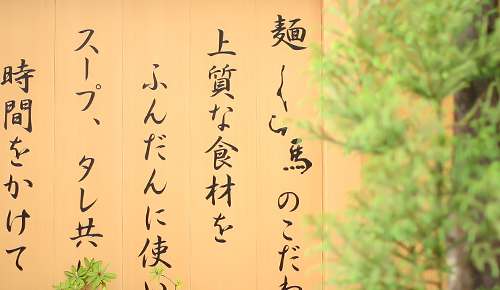 麺くら馬のこだわ
上質な食材を
ふんだんに使い
スープ、タレ共に
時間をかけて